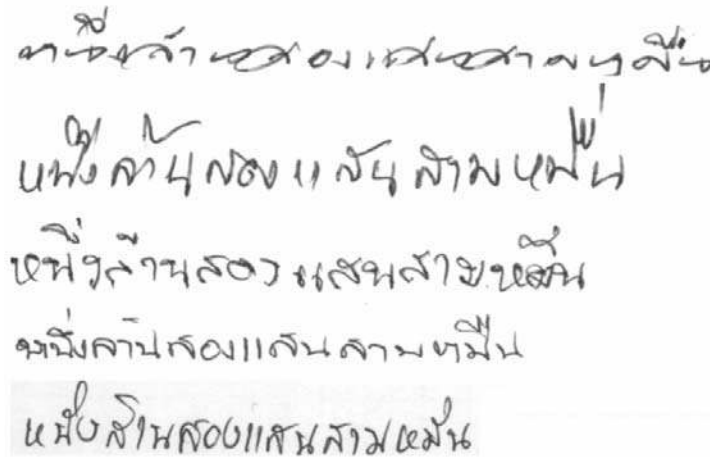 หนึ่งล้านสองแสนสามหมื่น
หนึ่งล้านสองแสนสามหมื่น
หนึ่งล้านสองแสนสามหมื่น
หนึ่งล้านสองแสนสามหมื่น
หนึ่งล้านสองแสนสามหมื่น